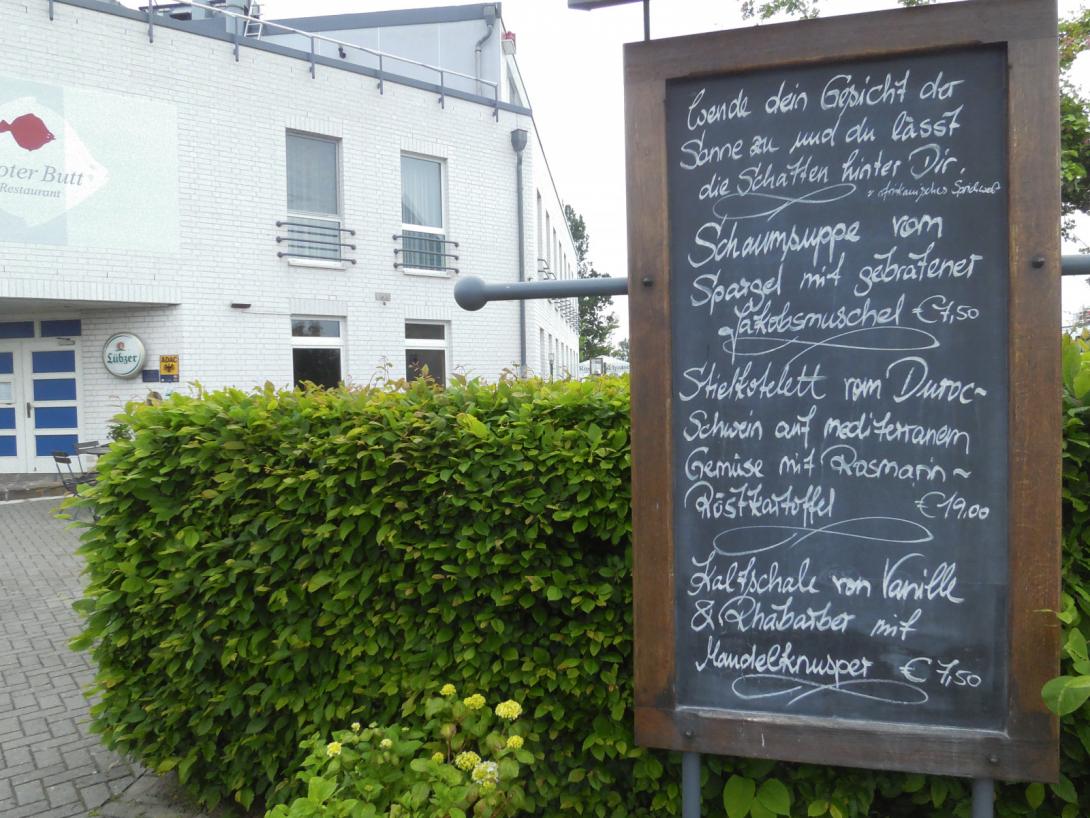 Roter Butt
Restaurant
Lübzer
ADAC
Wende dein Gesicht der
Sonne zu und du lässt
die Schatten hinter Dir.
afrikanisches Sprichwort
Schaumsuppe vom
Spargel mit gebratener
Jakobsmuschel €7,50
Stielkotelett vom Duroc-
Schwein auf mediterranem
Gemüse mit Rosmarin-
Röstkartoffel €19.00
Kaltschale von Vanille
& Rhabarber mit
Mandelknusper €7,50